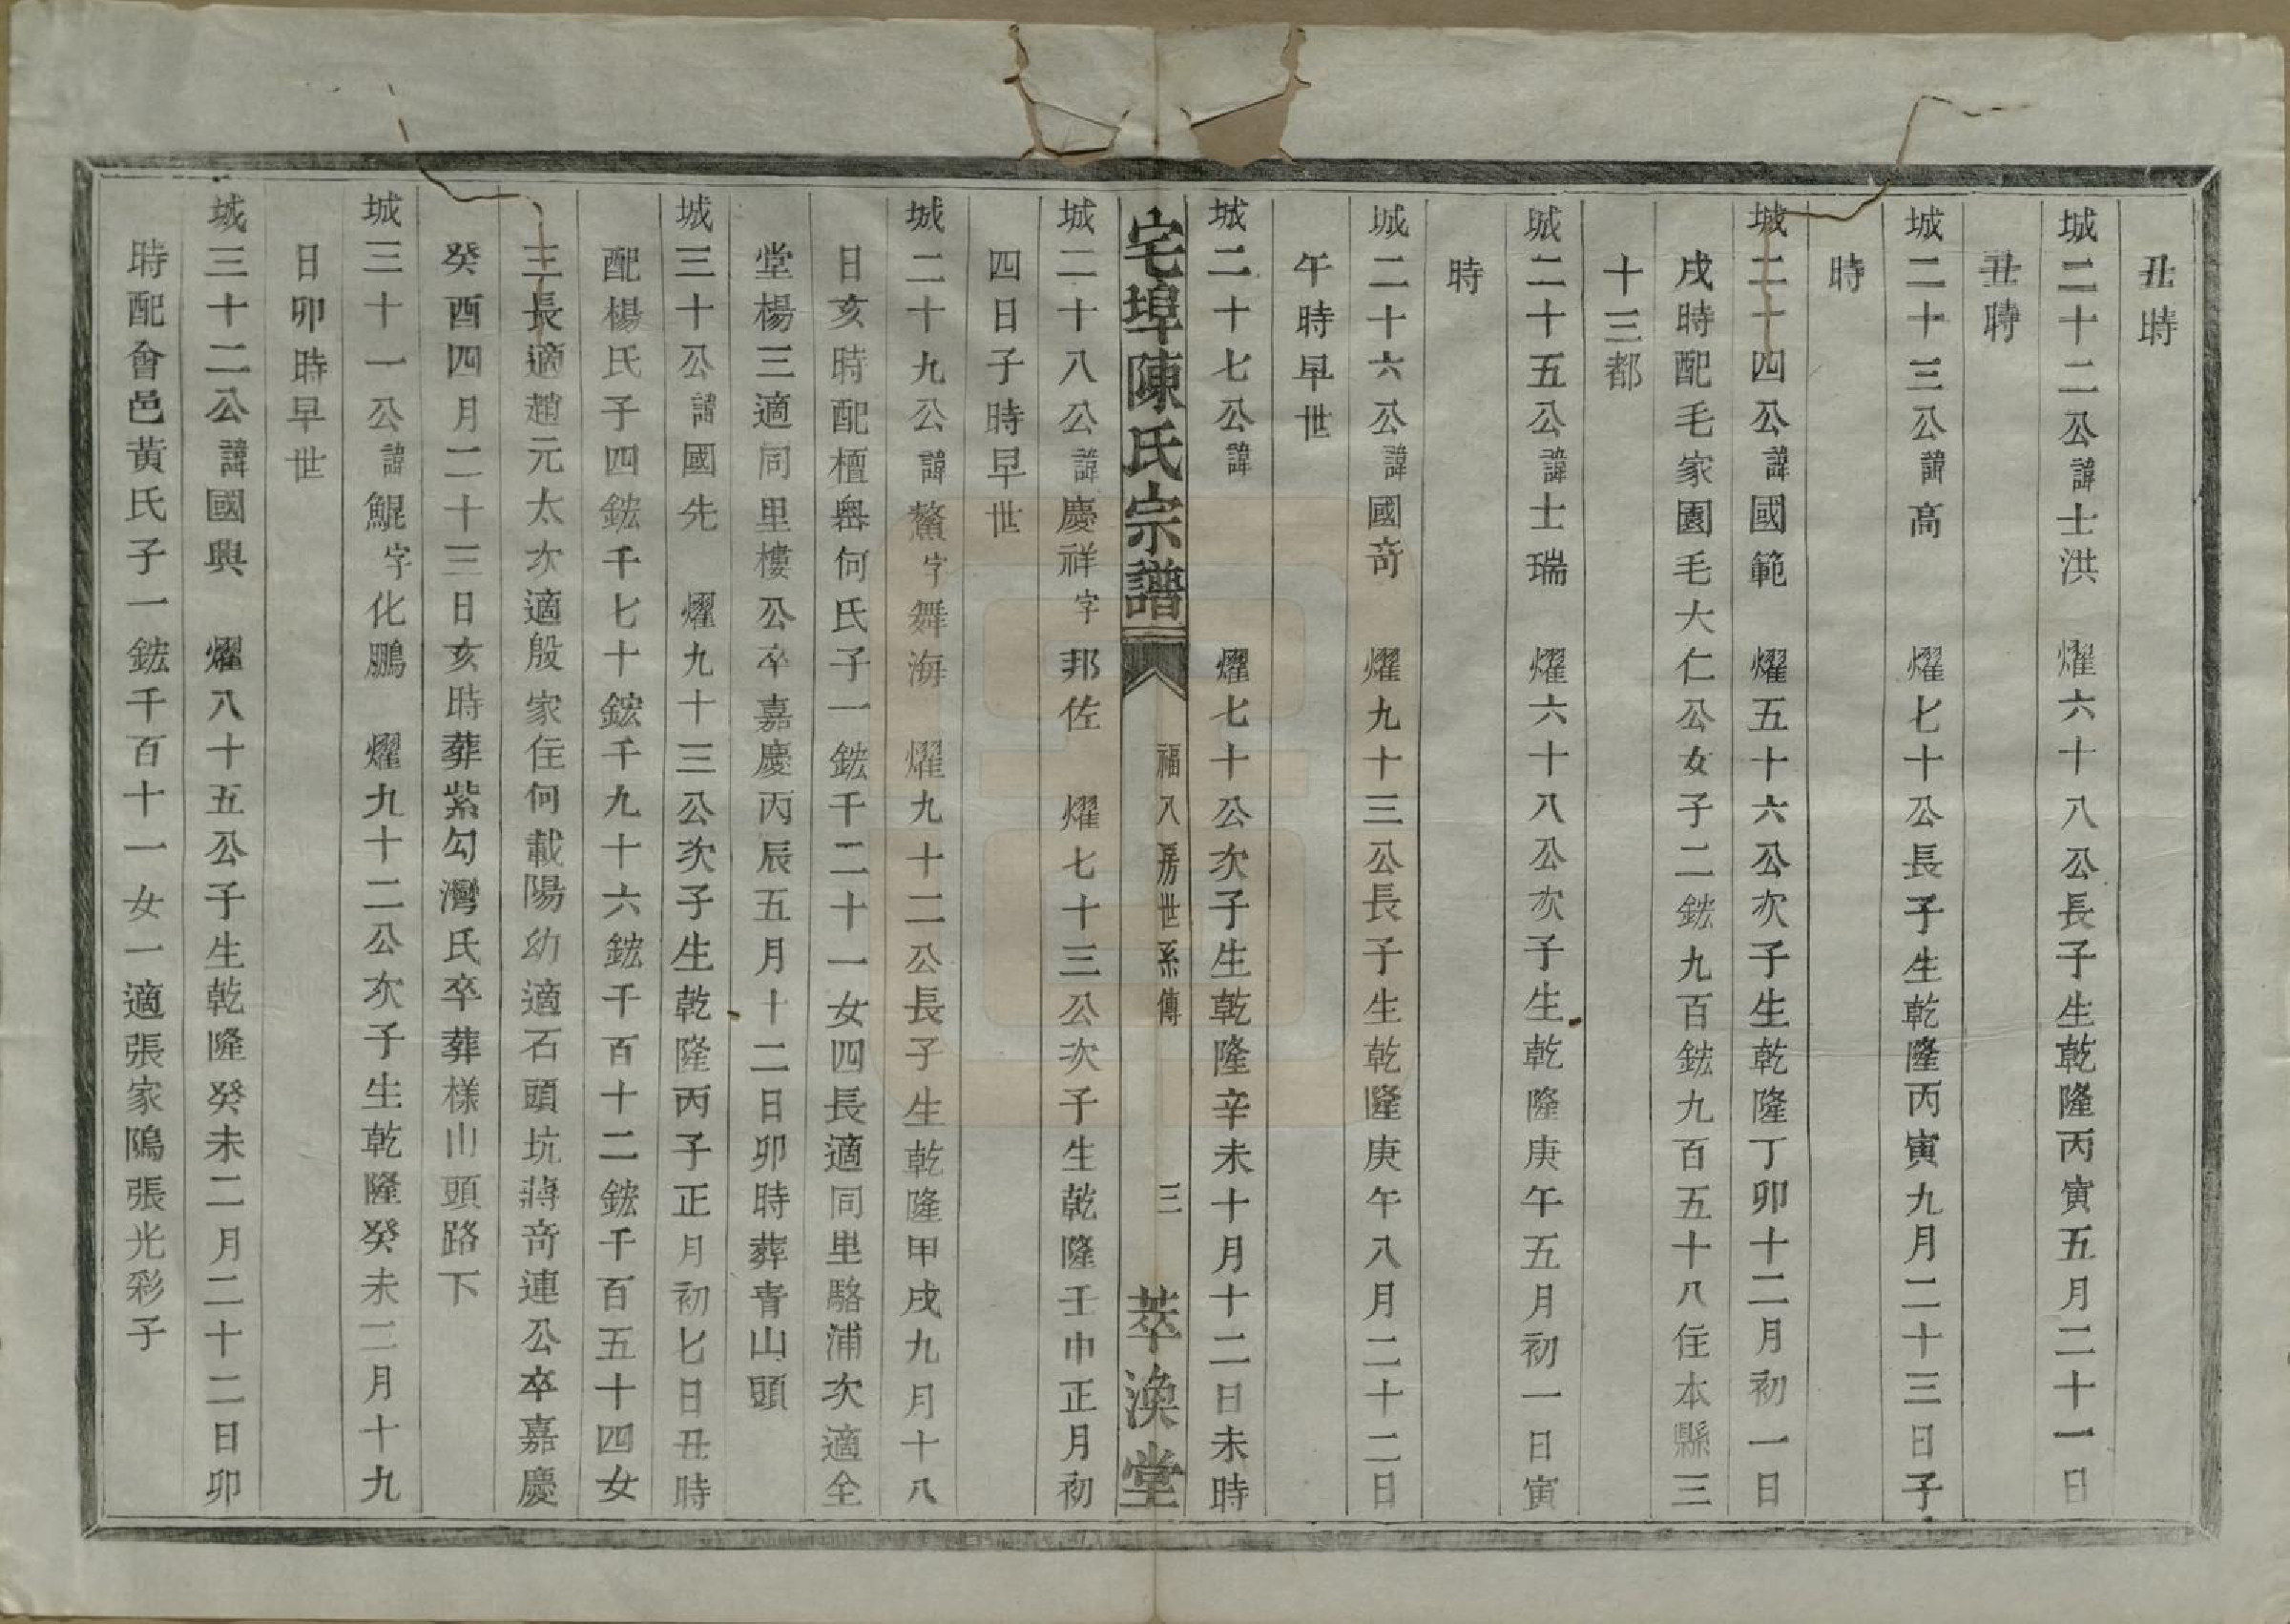 丑時
城二十二公諱士洪　燿六十八公長子生乾隆丙寅五月二十一日
丑時
城二十三公諱高　燿七十公長子生乾隆丙寅九月二十三日子
時
城二十四公諱國範　燿五十六公次子生乾隆丁卯十二月初一日
戌時配毛家園毛大仁公女子二鋐九百鋐九百五十八住本縣三
十三都
城二十五公諱士瑞　燿六十八公次子生乾隆庚午五月初一日寅
時
城二十六公諱國奇　燿九十三公長子生乾隆庚午八月二十二日
午時早世
城二十七公諱　燿七十公次子生乾隆辛未十月十二日未時
宅埠陳氏宗譜　福八房世系傳　三　萃渙堂
城二十八公諱慶祥字邦佐　燿七十三公次子生乾隆壬申正月初
四日子時早世
城二十九公諱鰲字舞海　燿九十二公長子生乾隆甲戌九月十八
日亥時配檀嶴何氏子一鋐千二十一女四長適同里駱浦次適全
堂楊三適同里樓公卒嘉慶丙辰五月十二日卯時葬青山頭
城三十公諱國先　燿九十三公次子生乾隆丙子正月初七日丑時
配楊氏子四鋐千七十鋐千九十六鋐千百十二鋐千百五十四女
三長適趙元太次適殷家住何載陽幼適石頭坑蔣奇連公卒嘉慶
癸酉四月二十三日亥時葬紫勾灣氏卒葬樣山頭路下
城三十一公諱鯤字化鵬　燿九十二公次子生乾隆癸未二月十九
日卯時早世
城三十二公諱國興　燿八十五公子生乾隆癸未二月二十二日卯
時配會邑黃氏子一鋐千百十一女一適張家隝張光彩子